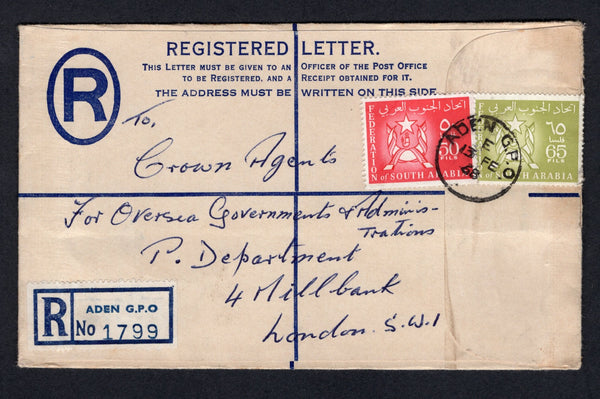 REGISTERED LETTER.
THIS LETTER MUST BE GIVEN TO AN OFFICER OF THE POST OFFICE
TO BE REGISTERED, AND A RECEIPT OBTAINED FOR IT.
THE ADDRESS MUST BE WRITTEN ON THIS SIDE
R
اتحاد الجنوب العربي
FEDERATION of SOUTH ARABIA
٥٠
50
FILS
اتحاد الجنوب العربي
of SOUTH ARABIA
٦٥
فلسا
65
FILS
ADEN G.P.O
E
13 FE
68
To,
Crown Agents
For Oversea Governments & Adminis-
trations
P. Department
4 Millbank
London. S.W.1
R
ADEN G.P.O
No 1799